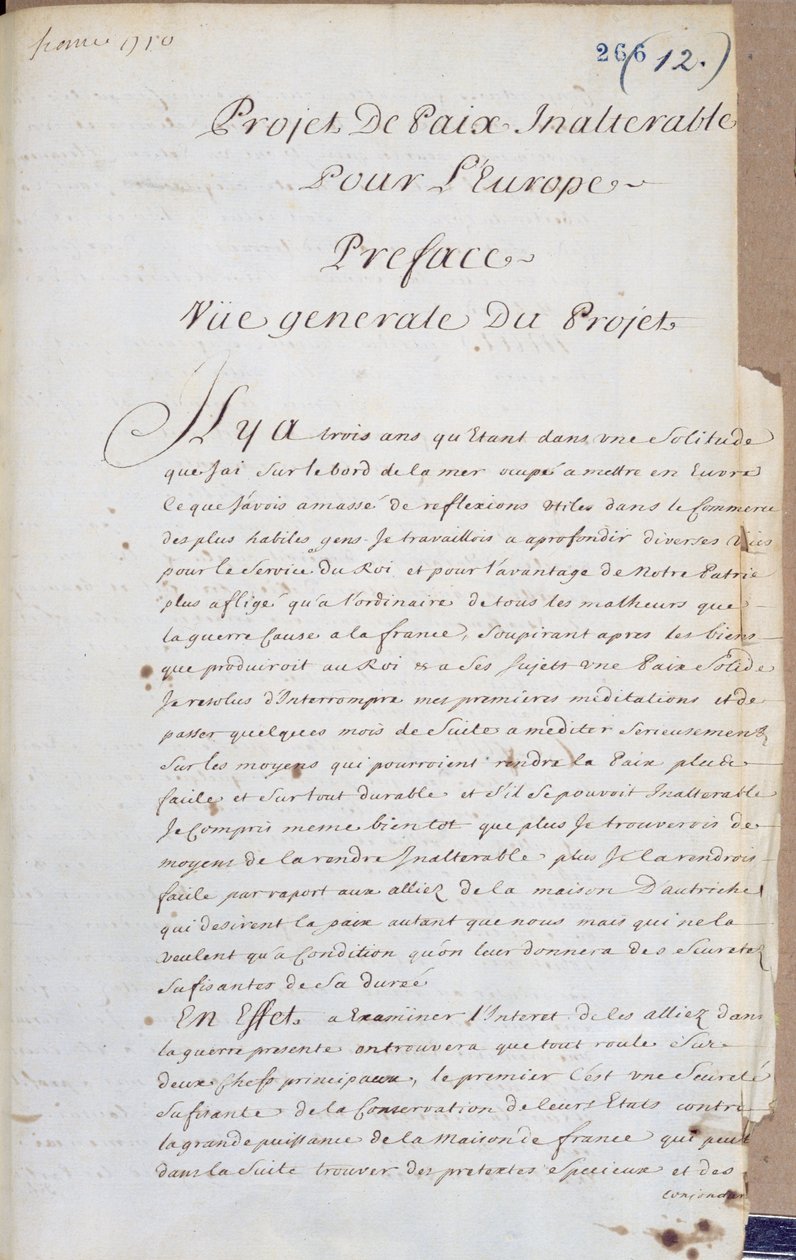 france 1750
266 (12.)
Projet De Paix Inalterable
Pour L'Europe
Preface
Vüe generale Du Projet
Il y a trois ans qu'Etant dans vne Solitude
que J'ai Sur le bord de la mer ocupé a mettre en Euvre
ce que J'avois amassé de reflexions Utiles dans le Commerce
des plus habiles gens. Je travaillois a aprofondir diverses Vües
pour le Service du Roi et pour l'avantage de Notre Patrie
plus afligé qu'a l'ordinaire de tous les malheurs que
la guerre Cause a la france, Soupirant apres les biens
que produiroit au Roi & a Ses Sujets vne Paix Solide
Je resolus d'Interrompre mes premieres meditations et de
passer quelques mois de Suite a mediter Serieusement
Sur les moyens qui pourroient rendre la Paix plus
facile et Sur tout durable et S'il Se pouvoit Inalterable
Je Compris meme bientot que plus Je trouverois de
moyens de la rendre Inalterable plus Je la rendrois
facile par raport aux alliez de la maison D'autriche
qui desirent la paix autant que nous mais qui ne la
veulent qu'a Condition qu'on leur donnera des Seuretez
Sufisantes de Sa dureé
En Effet a Examiner l'Interet de ces alliez dans
la guerre presente on trouvera que tout roule Sur
deux Chefs principaux, le premier C'est vne Seureté
Sufisante de la Conservation de leurs Etats contre
la grande puissance de la Maison de france qui peut
dans la Suite trouver des pretextes Specieux et des